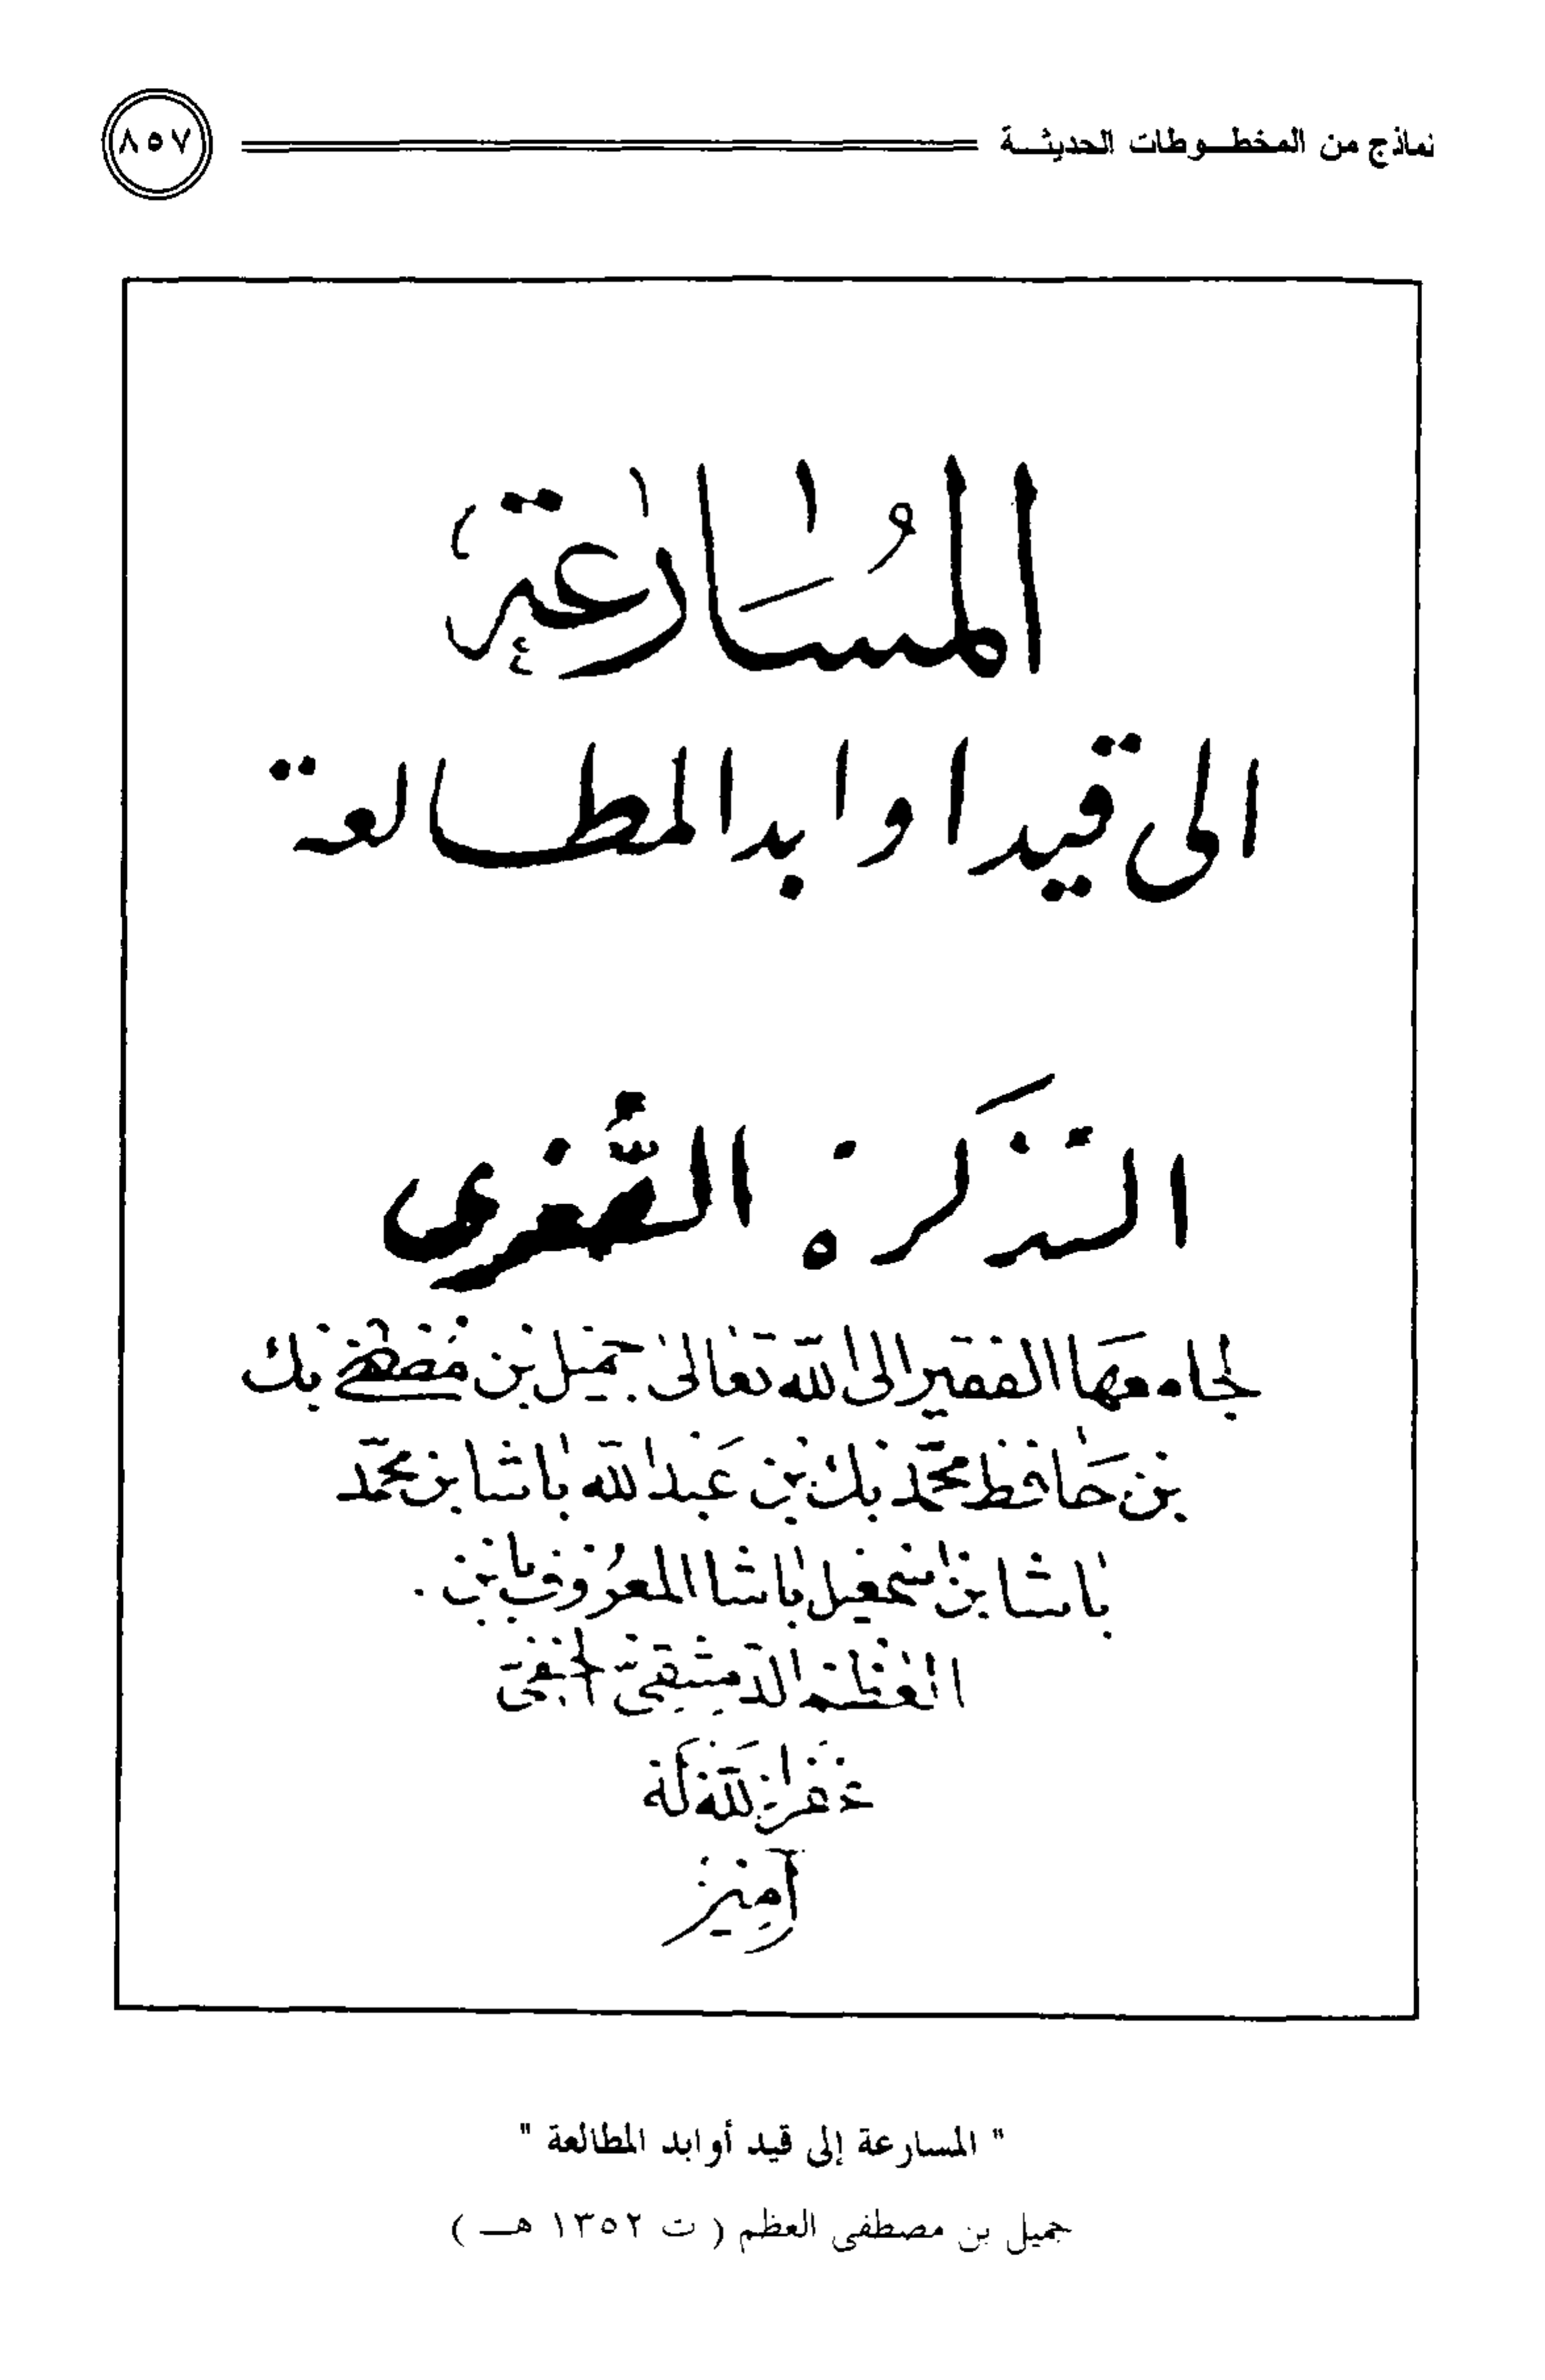 نماذج من المخطوطات الحديثة
٨٥٧
المُسَارعة
الى قيد اوابد المطالعة
التذكَرة الصُّغرى
لجامعهَا الفقير الى الله تعالى جميل بن مُصطفى بك
بن حَافظ محمّد بك بن عَبد الله باشا بن محمّد
باشا بن اسمعيل باشا المعرُوف بابن
العظم الدمشقي الحنفي
غفَر الله لَه
آمِين
" المسارعة إلى قيد أوابد المطالعة "
جميل بن مصطفى العظم ( ت ١٣٥٢ هـ )